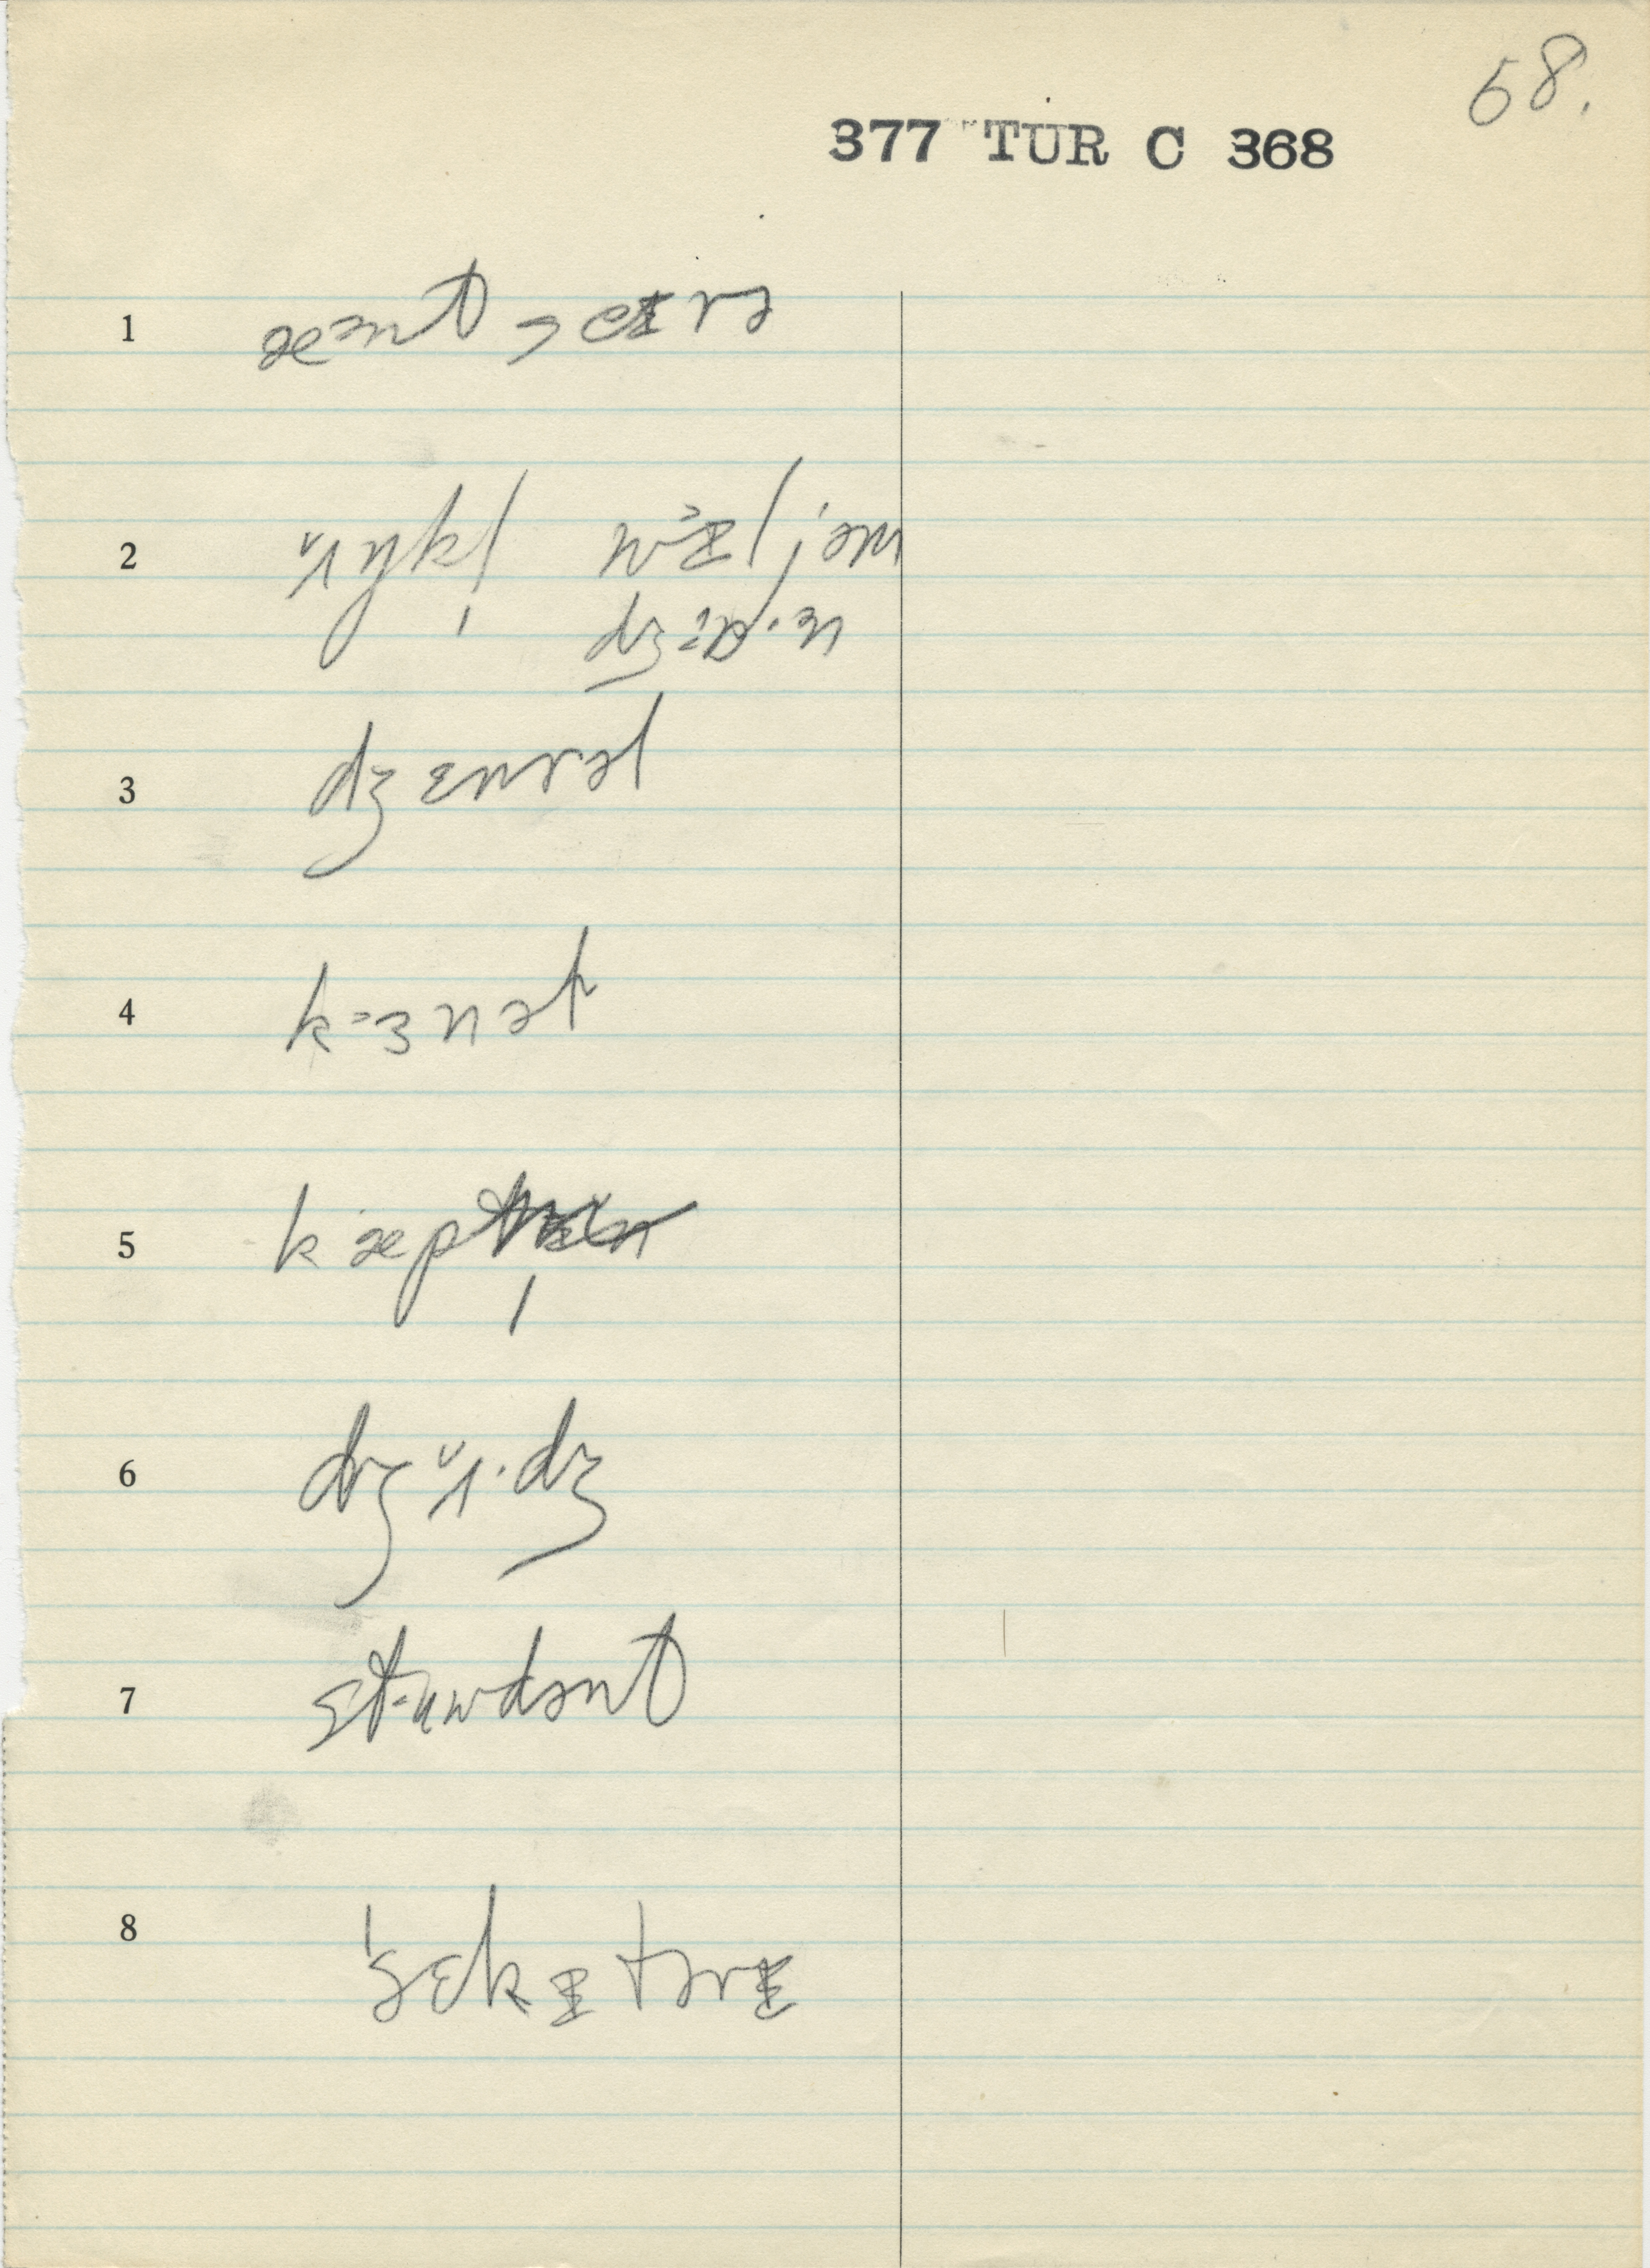 68.
377 TUR C 368
1 æənt sɛɪrə
2 ʌ̆ŋkl̩ wɪljəm
dʒɒ·ɜn
3 dʒɛnrəl
4 kɜnəl
5 kæp
6 dʒʌ̆·dʒ
7 stuwdənt
8 ˈsɛkɪtərɪ